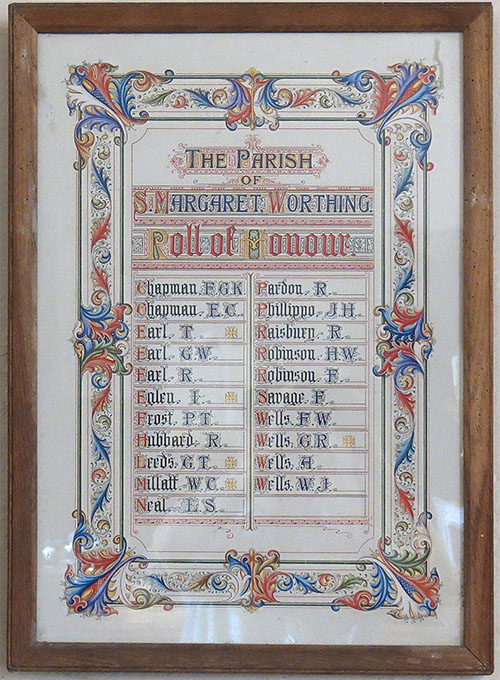 The Parish
of
S. Margaret: Worthing
Roll of Honour.
Chapman, F.G.K
Chapman, E.C.
Earl, T.
Earl, G.W.
Earl, R.
Eglen, I.
Frost, P.T.
Hubbard, R.
Leeds, G.T.
Millatt, W.C.
Neal, L.S.
Pardon, R.
Phillippo, J.H.
Raisbury, R.
Robinson, H.W.
Robinson, F.
Savage, F.
Wells, F.W.
Wells, G.R.
Wells, A.
Wells, W.J.